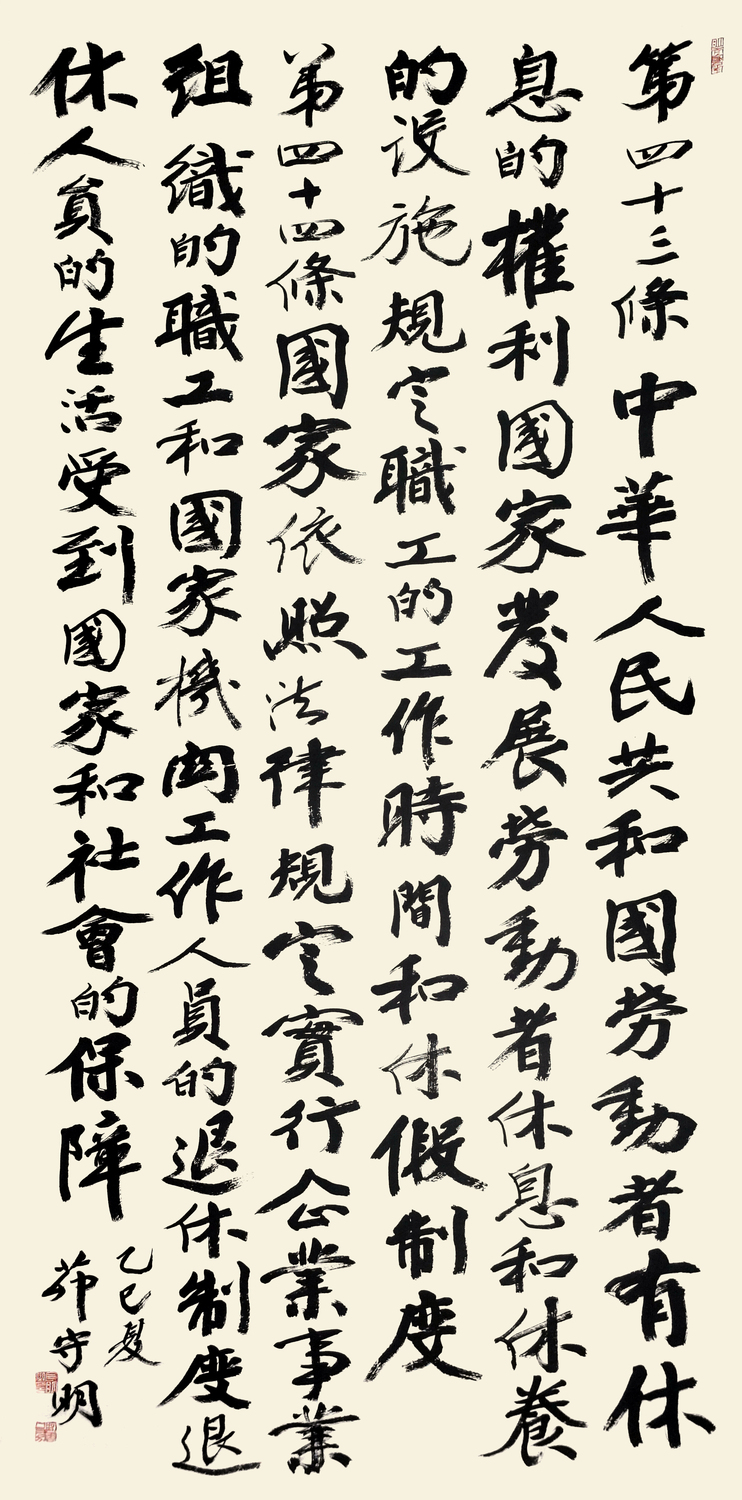 第四十三條中華人民共和國勞動者有休
息的權利國家發展勞動者休息和休養
的設施規定職工的工作時間和休假制度
第四十四條國家依照法律規定實行企業事業
組織的職工和國家機關工作人員的退休制度退
休人員的生活受到國家和社會的保障
乙巳夏
茆守明